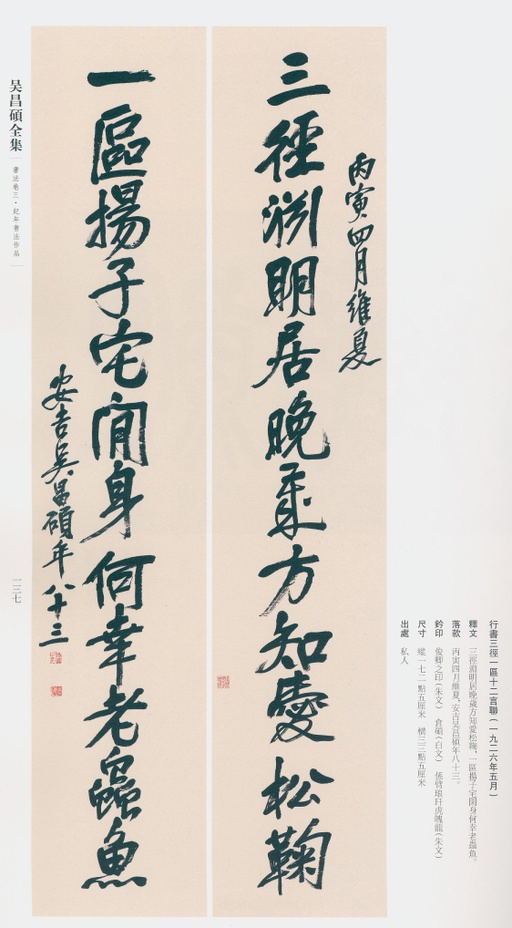 丙寅四月維夏
三徑渊明居晚歲方知愛松鞠
一區揚子宅閒身何幸老蟲魚
安吉吴昌碩年八十三
行書三徑一區十二言聯（一九二六年五月）
釋文　三徑淵明居晚歲方知愛松鞠，一區揚子宅閒身何幸老蟲魚。
落款　丙寅四月維夏，安吉吴昌碩年八十三。
鈐印　俊卿之印（朱文）　倉碩（白文）
尺寸　縱一七二點五厘米　橫三三點五厘米
出處　私人
吴昌碩全集
書法卷三·紀年書法作品
一三七